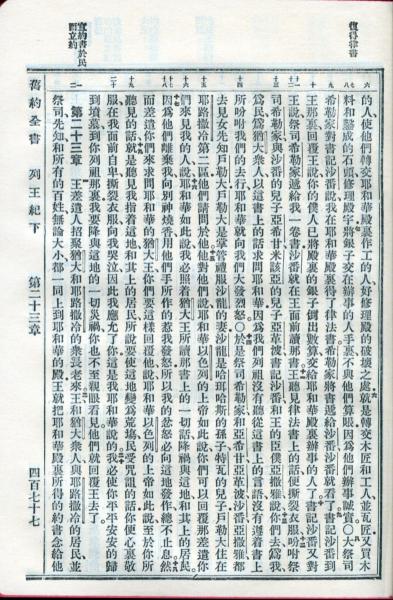 復得律書
的人使他們轉交耶和華殿裏作工的人好修理殿的破壞之處就是轉交木匠和工人並瓦匠又買木
料和鑿成的石頭修理殿宇將銀子交在辦事的人手裏不與他們算賬因為他們辦事誠實〇大祭司
希勒家對書記沙番說我在耶和華殿裏得了律法書希勒家將書遞給沙番沙番就看了書記沙番到
王那裏回覆王說你的僕人已將殿裏的銀子倒出數算交給耶和華殿裏辦事的人了書記沙番又對
王說祭司希勒家遞給我一卷書沙番就在王面前讀那書王聽見律法書上的話便撕裂衣服吩咐祭
司希勒家與沙番的兒子亞希甘米該亞的兒子亞革波書記沙番和王的臣僕亞撒雅說你們去為我
為民為猶大眾人以這書上的話求問耶和華因為我們列祖沒有聽從這書上的言語沒有遵着書上
所吩咐我們的去行耶和華就向我們大發烈怒〇於是祭司希勒家和亞希甘亞革波沙番亞撒雅都
去見女先知戶勒大戶勒大是掌管禮服沙龍的妻沙龍是哈珥哈斯的孫子特瓦的兒子戶勒大住在
耶路撒冷第二區他們請問於他他對他們說耶和華以色列的上帝如此說你們可以回覆那差遣你
們來見我的人說耶和華如此說我必照着猶大王所讀那書上的一切話降禍與這地和其上的居民
因為他們離棄我向別神燒香用他們手所作的惹我發怒所以我的忿怒必向這地發作總不止息然
而差遣你們來求問耶和華的猶大王你們要這樣回覆他說耶和華以色列的上帝如此說至於你所
聽見的話就是聽見我指着這地和其上的居民所說要使這地變為荒塲民受咒詛的話你便心裏敬
服在我面前自卑撕裂衣服向我哭泣因此我應允了你這是我耶和華說的我必使你平平安安的歸
到墳墓到你列祖那裏我要降與這地的一切災禍你也不至親眼看見他們就回覆王去了
第二十三章 王差遣人招聚猶大和耶路撒冷的眾長老來王和猶大眾人與耶路撒冷的居民並
祭司先知和所有的百姓無論大小都一同上到耶和華的殿王就把耶和華殿裏所得的約書念給他
宣約書於民
立約
舊約全書 列王紀下 第二十三章 四百七十七